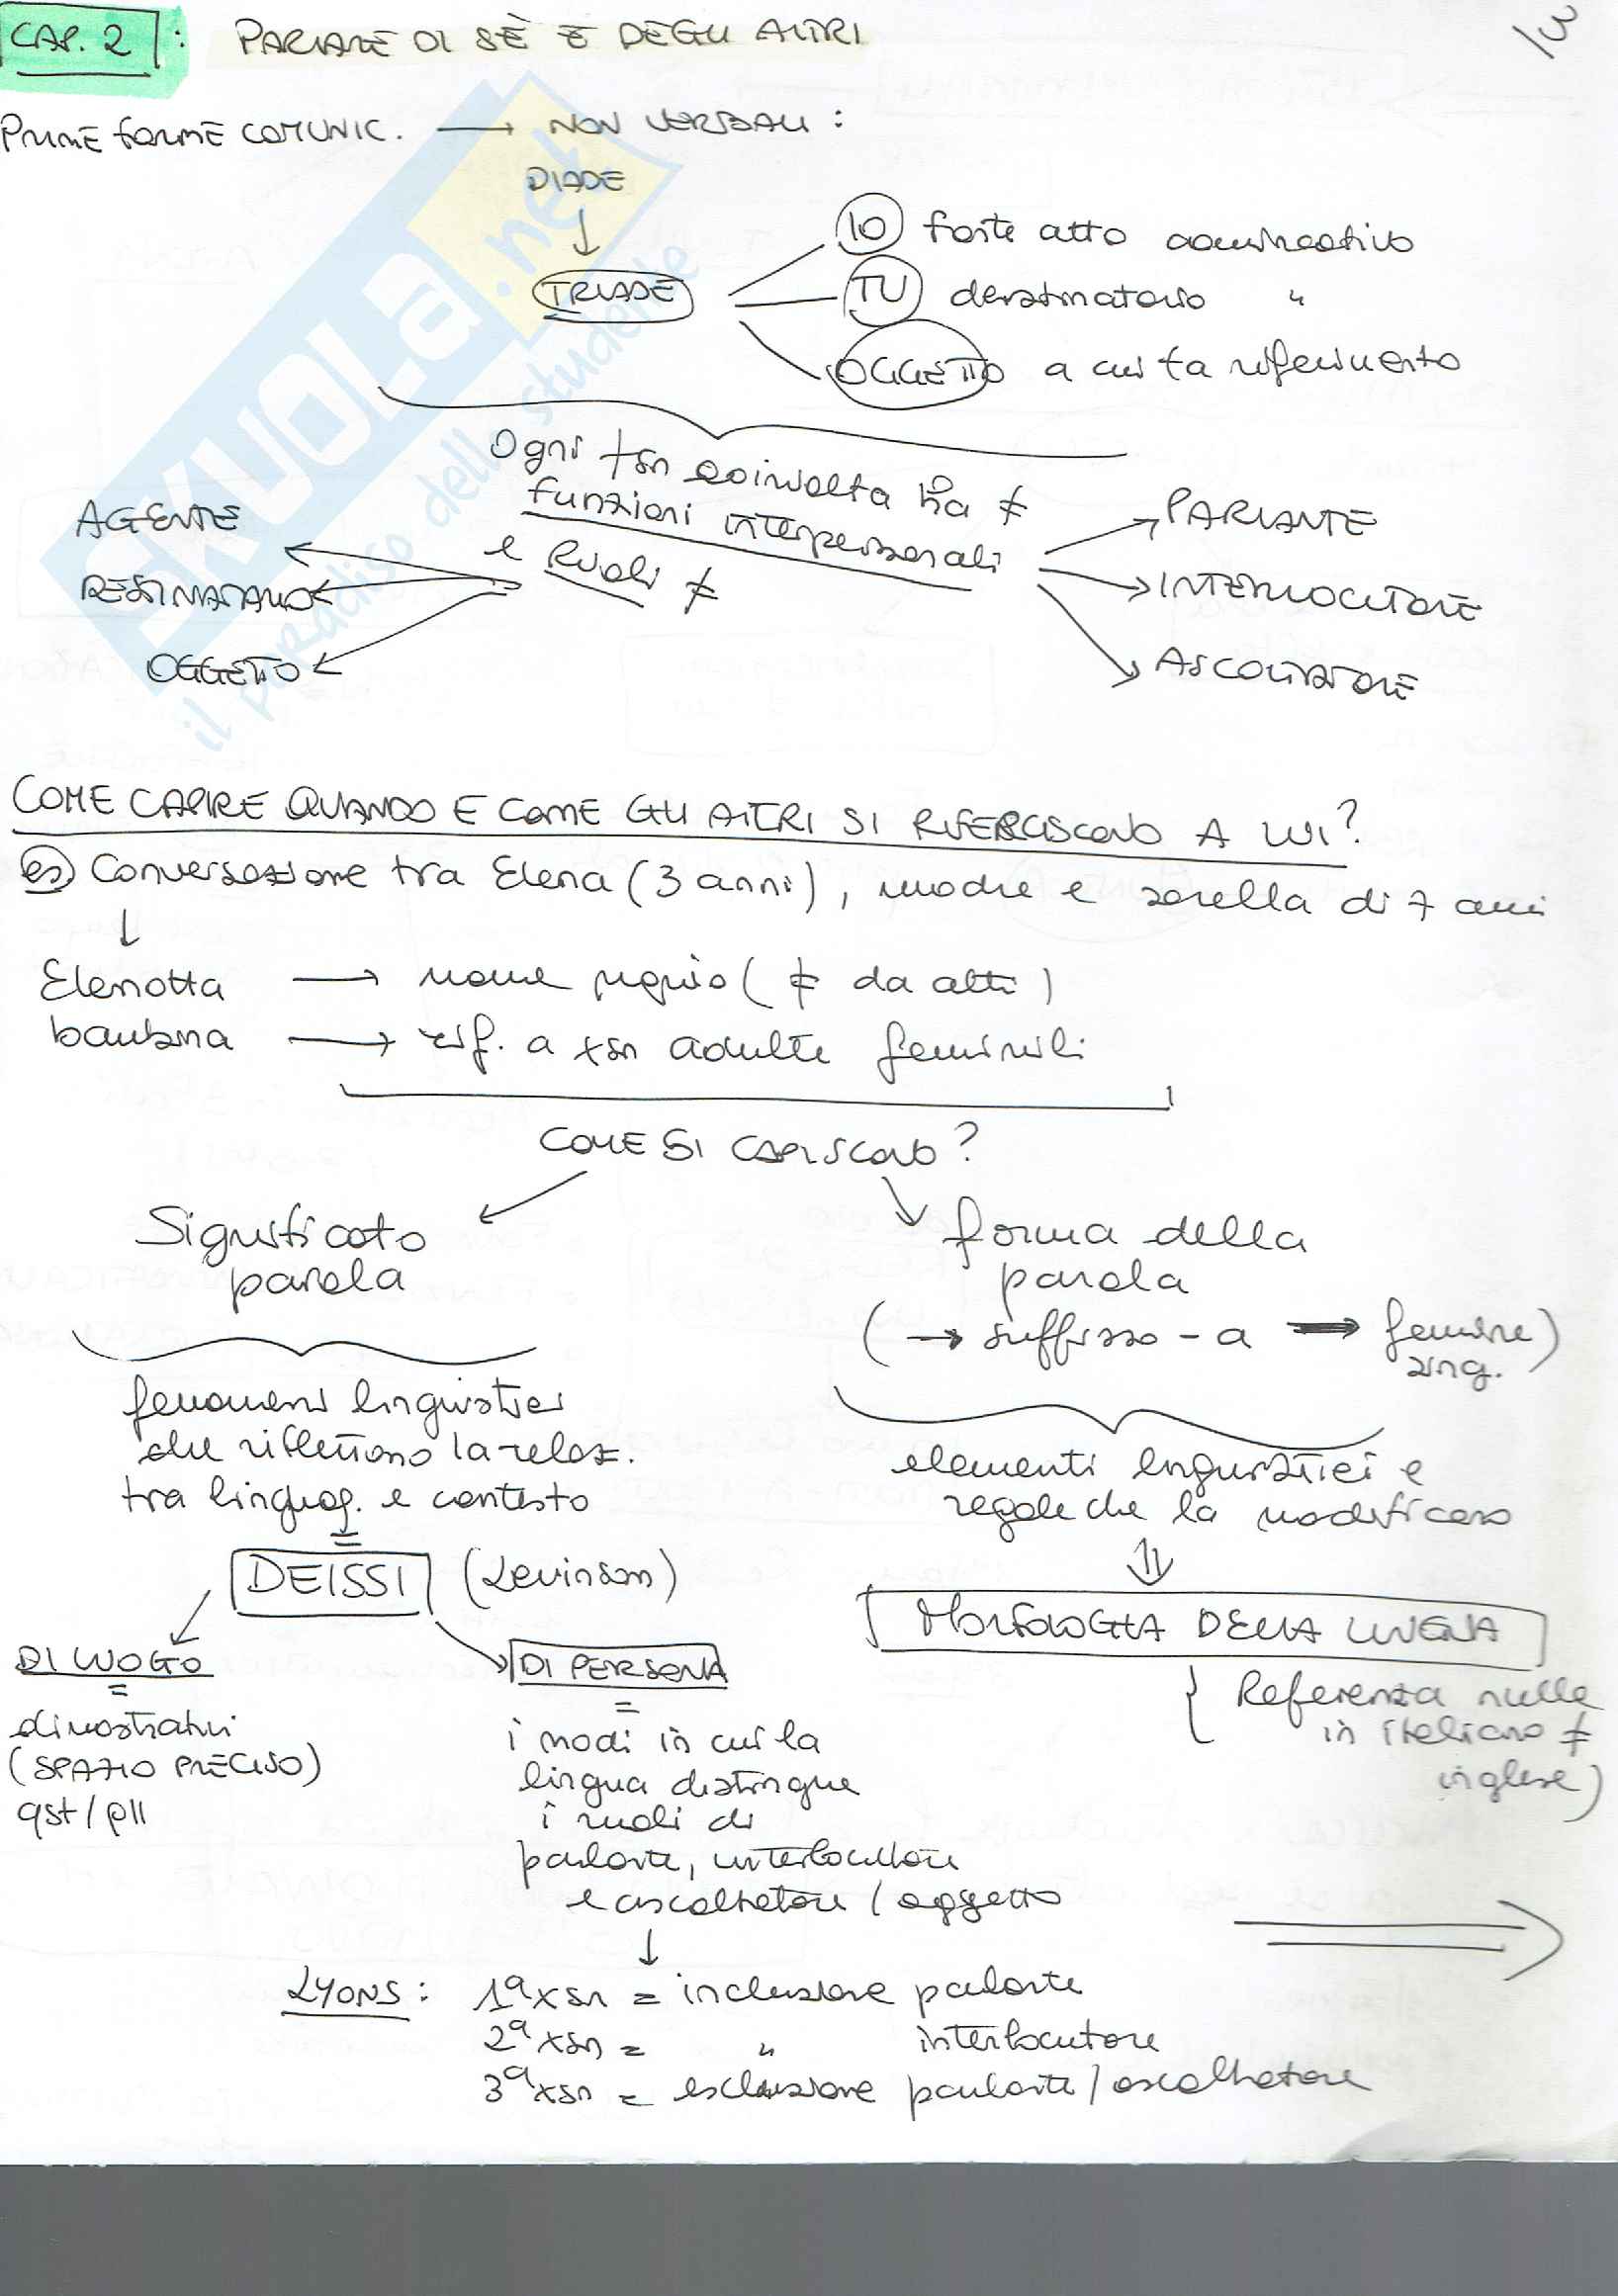 13
CAP. 2 : PARLARE DI SÈ E DEGLI ALTRI
PRIME FORME COMUNIC. → NON VERBALI :
DIADE
↓
TRIADE
IO fonte atto comunicativo
TU destinatario "
OGGETTO a cui fa riferimento
Ogni xsn coinvolta ha ≠
funzioni interpersonali
e Ruoli ≠
AGENTE
DESTINATARIO
OGGETTO
PARLANTE
INTERLOCUTORE
ASCOLTATORE
SKUOLA.net
il paradiso dello studente
COME CAPIRE QUANDO E COME GLI ALTRI SI RIFERISCONO A LUI?
es) Conversazione tra Elena (3 anni), madre e sorella di 7 anni
↓
Elenotta → nome proprio (≠ da altri)
bambina → rif. a xsn adulte femminili
COME SI CAPISCONO?
Significato
parola
forma della
parola
(→ suffisso -a → femm.
sing.)
fenomeni linguistici
che riflettono la relaz.
tra linguag. e contesto
=
DEISSI (Levinson)
elementi linguistici e
regole che la modificano
⇓
MORFOLOGIA DELLA LINGUA
{ Referenza nulla
in italiano ≠
inglese)
DI LUOGO
=
dimostrativi
(SPAZIO PRECISO)
qst/qll
DI PERSONA
=
i modi in cui la
lingua distingue
i ruoli di
parlante, interlocutore
e ascoltatore / oggetto
↓
LYONS: 1ª xsn = inclusione parlante
2ª xsn = " interlocutore
3ª xsn = esclusione parlante/ascoltatore